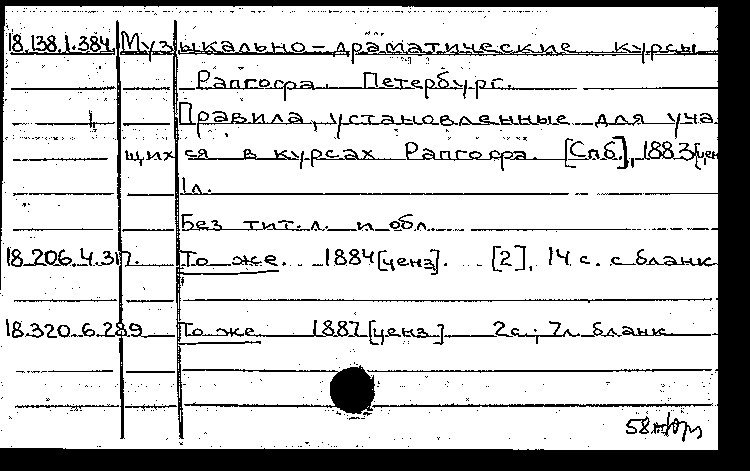 18.138.1.384 Музыкально-драматические курсы
Рапгофа. Петербург.
Правила, установленные для уча
щихся в курсах Рапгофа. [Спб.], 1883[цен
1л.
Без тит.л. и обл.
18.206.4.317. То же. 1884[ценз]. [2], 14 с. с бланк
18.320.6.289 То же 1887 [ценз.] 2с.; 7л. бланк